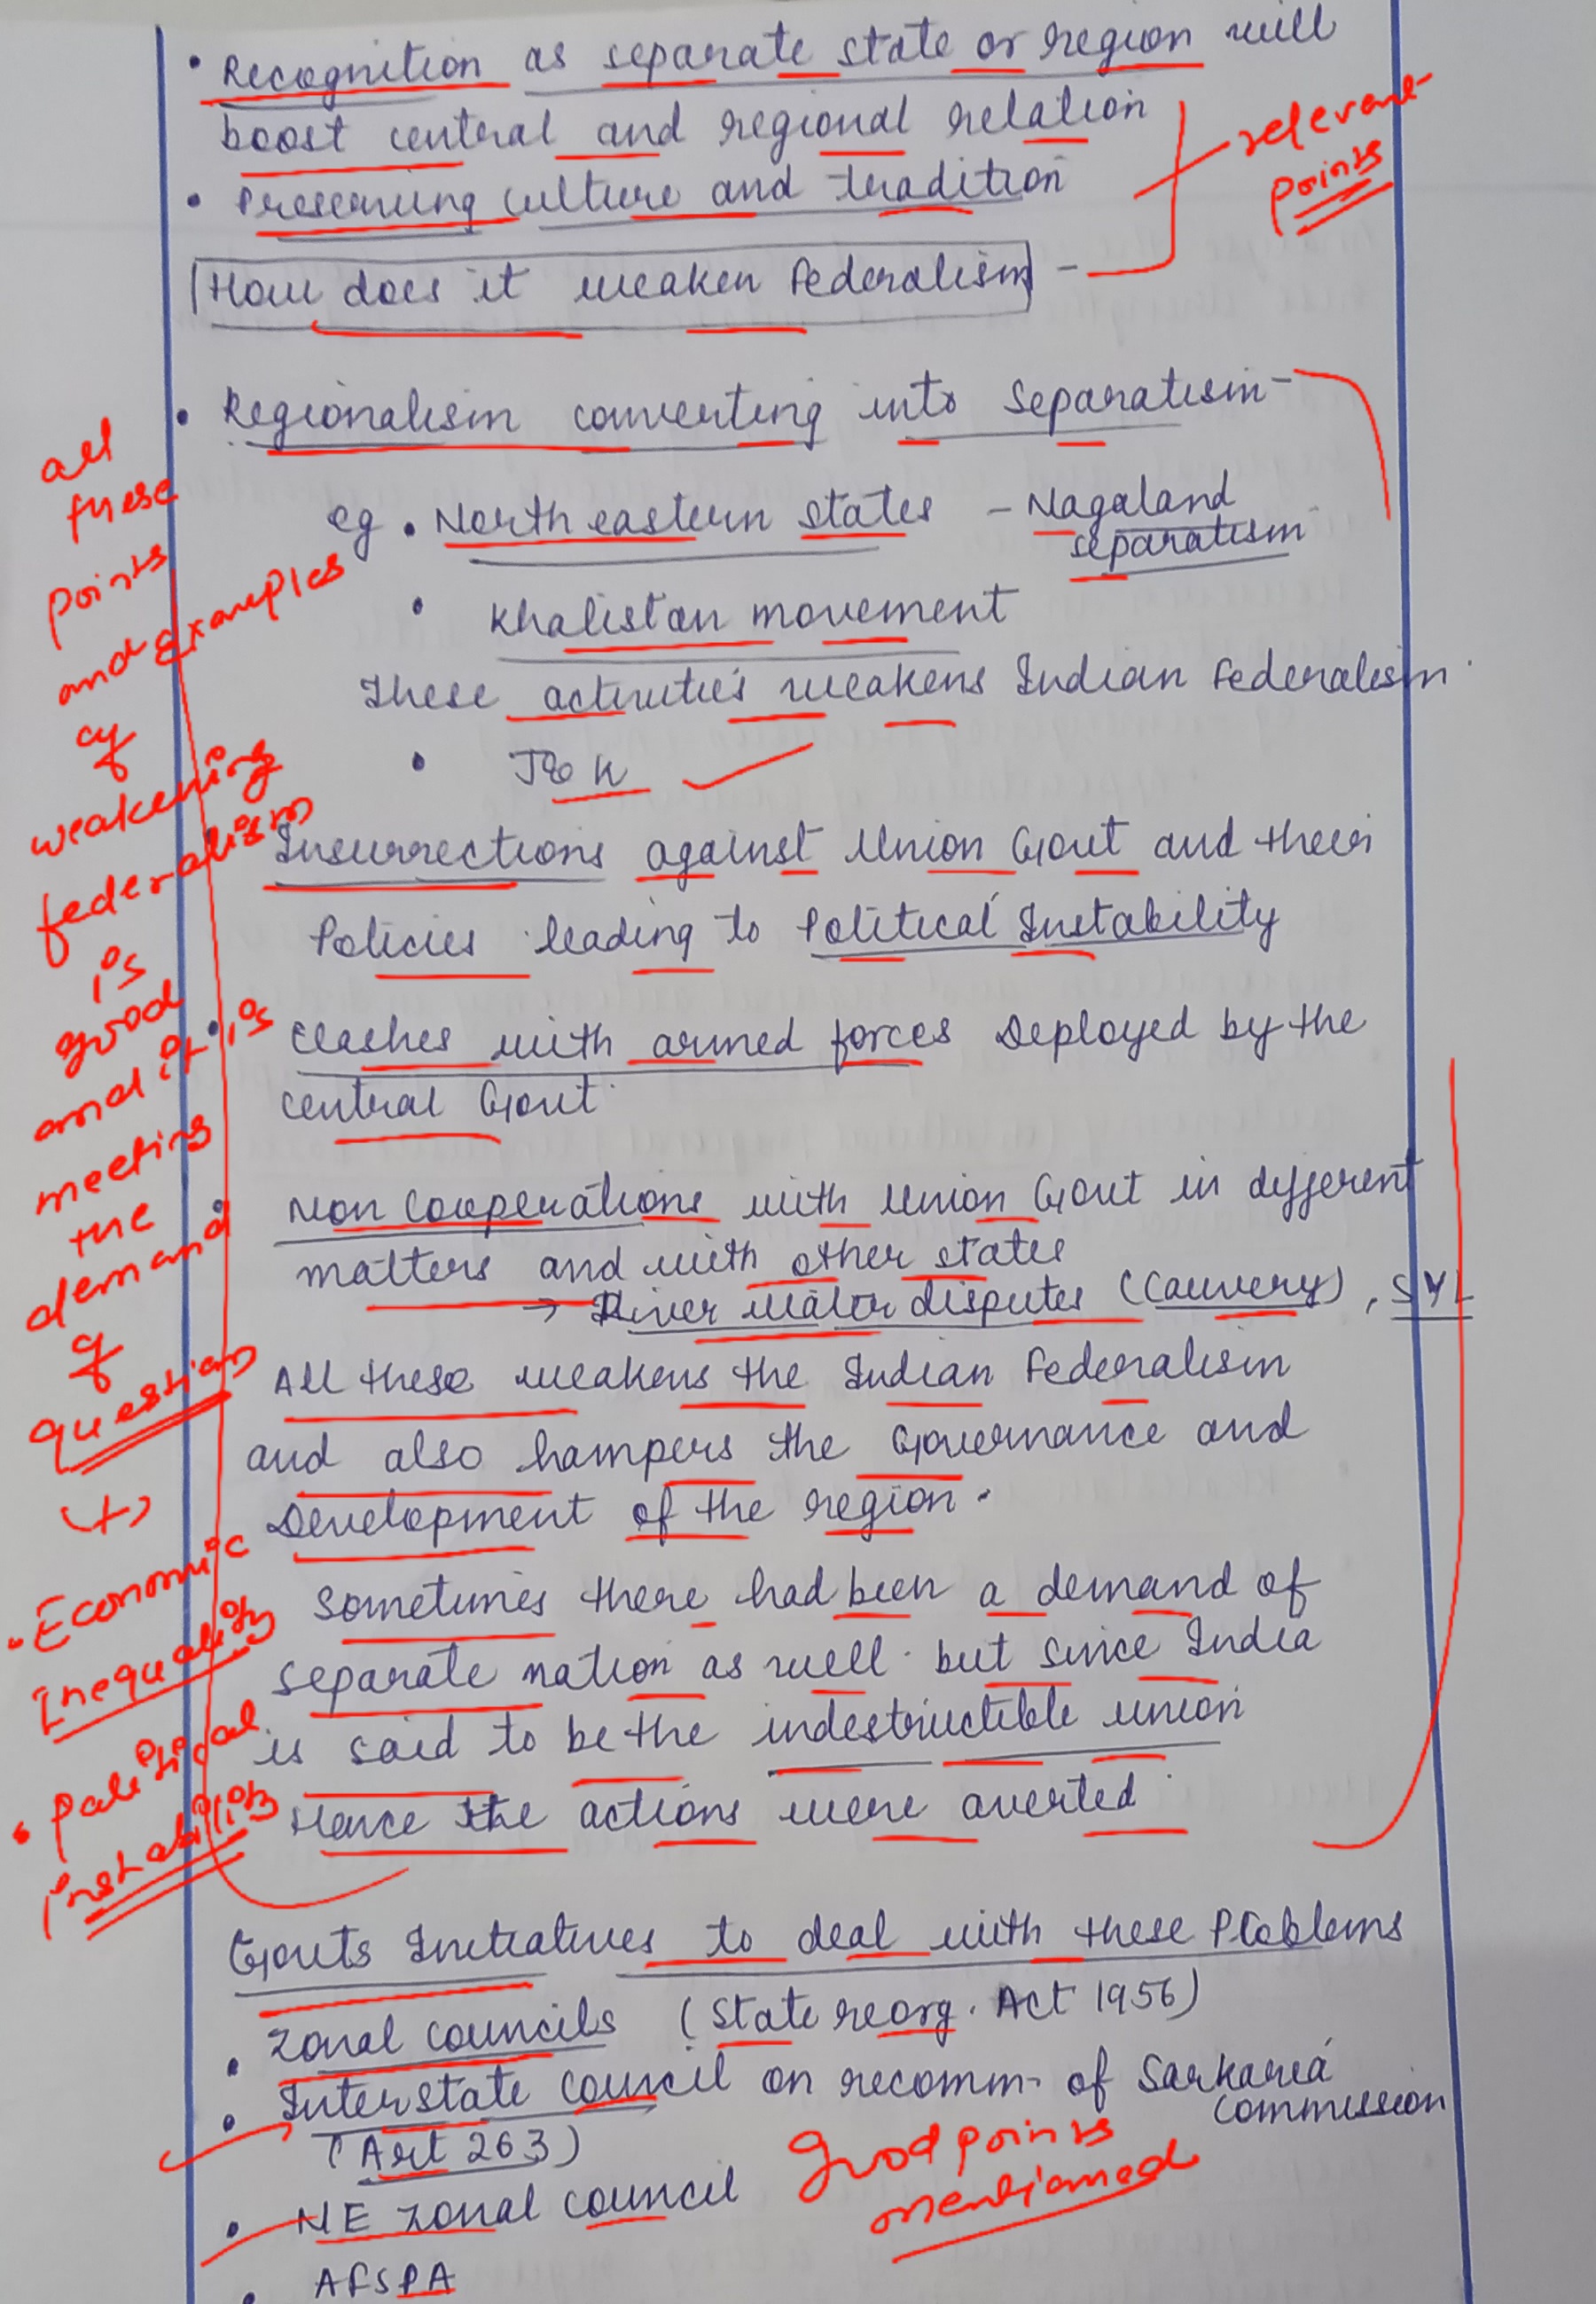 • Recognition as separate state or region will
boost central and regional relation
• Preserving culture and tradition
relevant
points
How does it weaken Federalism -
• Regionalism converting into Separatism -
eg • North eastern states - Nagaland
separatism
• Khalistan movement
These activities weakens Indian Federalism.
• J&K
Insurrections against Union Govt and their
Policies leading to Political Instability
• Clashes with armed forces Deployed by the
central Govt.
• Non Cooperations with Union Govt in different
matters and with other states
→ River Water disputes (Cauvery), SYL
All these weakens the Indian Federalism
and also hampers the Governance and
Development of the region.
Sometimes there had been a demand of
separate nation as well. but since India
is said to be the indestructible union
Hence the actions were averted.
all
these
points
and examples
of
weakening
federalism
is
good
and it is
meeting
the
demand
of
question
(+)
• Economic
Inequality
• Political
instability
Govts Initiatives to deal with these Problems
• Zonal Councils (State reorg. Act 1956)
• Interstate Council on recomm- of Sarkaria
Commission
(Art 263)
• NE Zonal Council
Good points
mentioned
• AFSPA